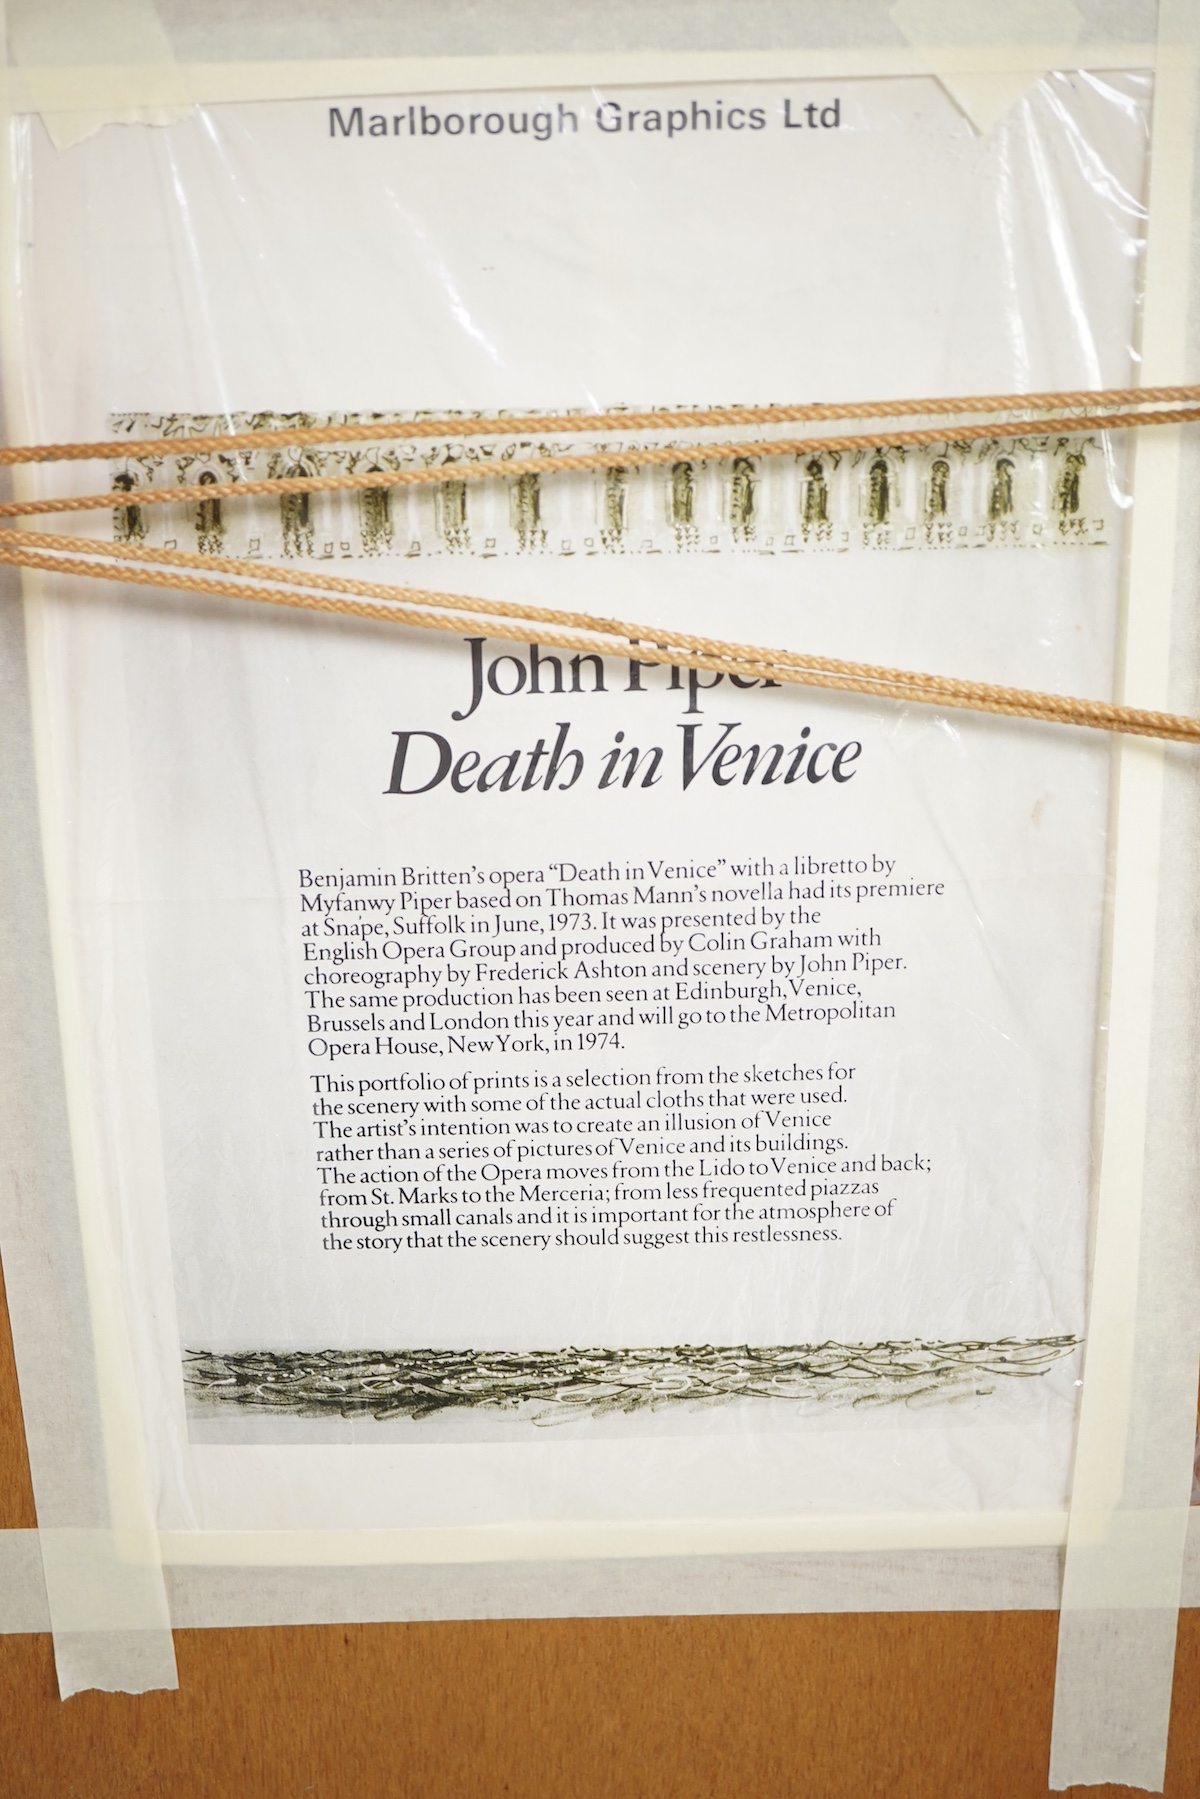 Marlborough Graphics Ltd
John Piper
Death in Venice
Benjamin Britten's opera “Death in Venice” with a libretto by
Myfanwy Piper based on Thomas Mann's novella had its premiere
at Snape, Suffolk in June, 1973. It was presented by the
English Opera Group and produced by Colin Graham with
choreography by Frederick Ashton and scenery by John Piper.
The same production has been seen at Edinburgh, Venice,
Brussels and London this year and will go to the Metropolitan
Opera House, New York, in 1974.
This portfolio of prints is a selection from the sketches for
the scenery with some of the actual cloths that were used.
The artist's intention was to create an illusion of Venice
rather than a series of pictures of Venice and its buildings.
The action of the Opera moves from the Lido to Venice and back;
from St. Marks to the Merceria; from less frequented piazzas
through small canals and it is important for the atmosphere of
the story that the scenery should suggest this restlessness.